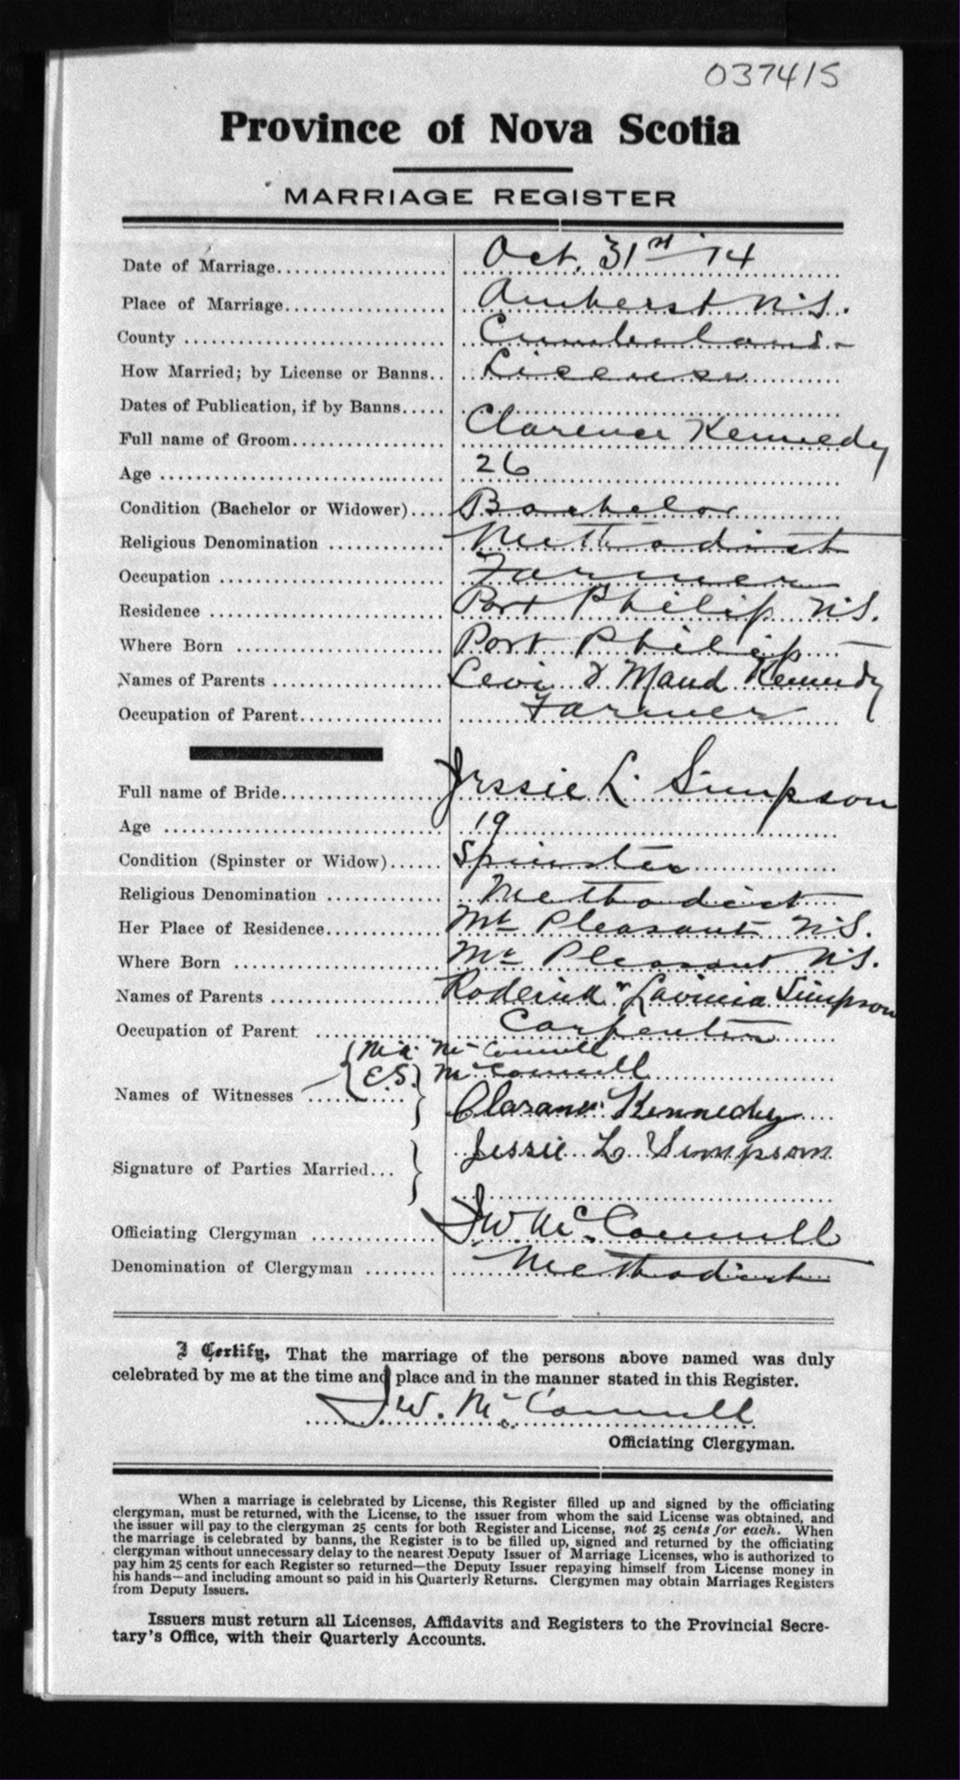 037415
Province of Nova Scotia
MARRIAGE REGISTER
Date of Marriage Oct. 31st 14
Place of Marriage Amherst N.S.
County Cumberland
How Married; by License or Banns License
Dates of Publication, if by Banns
Full name of Groom Clarence Kennedy
Age 26
Condition (Bachelor or Widower) Bachelor
Religious Denomination Methodist
Occupation Farmer
Residence Port Philip N.S.
Where Born Port Philip
Names of Parents Levi & Maud Kennedy
Occupation of Parent Farmer
Full name of Bride Jessie L. Simpson
Age 19
Condition (Spinster or Widow) Spinster
Religious Denomination Methodist
Her Place of Residence Mt Pleasant N.S.
Where Born Mt Pleasant N.S.
Names of Parents Roderick " Lavinia Simpson
Occupation of Parent Carpenter
McConnell
Names of Witnesses E.S. McConnell
Clarance Kennedy
Signature of Parties Married Jessie L Simpson
Officiating Clergyman J W. McConnell
Denomination of Clergyman Methodist
I Certify, That the marriage of the persons above named was duly
celebrated by me at the time and place and in the manner stated in this Register.
J W. McConnell
Officiating Clergyman.
When a marriage is celebrated by License, this Register filled up and signed by the officiating
clergyman, must be returned, with the License, to the issuer from whom the said License was obtained, and
the issuer will pay to the clergyman 25 cents for both Register and License, not 25 cents for each. When
the marriage is celebrated by banns, the Register is to be filled up, signed and returned by the officiating
clergyman without unnecessary delay to the nearest Deputy Issuer of Marriage Licenses, who is authorized to
pay him 25 cents for each Register so returned—the Deputy Issuer repaying himself from License money in
his hands—and including amount so paid in his Quarterly Returns. Clergymen may obtain Marriages Registers
from Deputy Issuers.
Issuers must return all Licenses, Affidavits and Registers to the Provincial Secre-
tary's Office, with their Quarterly Accounts.